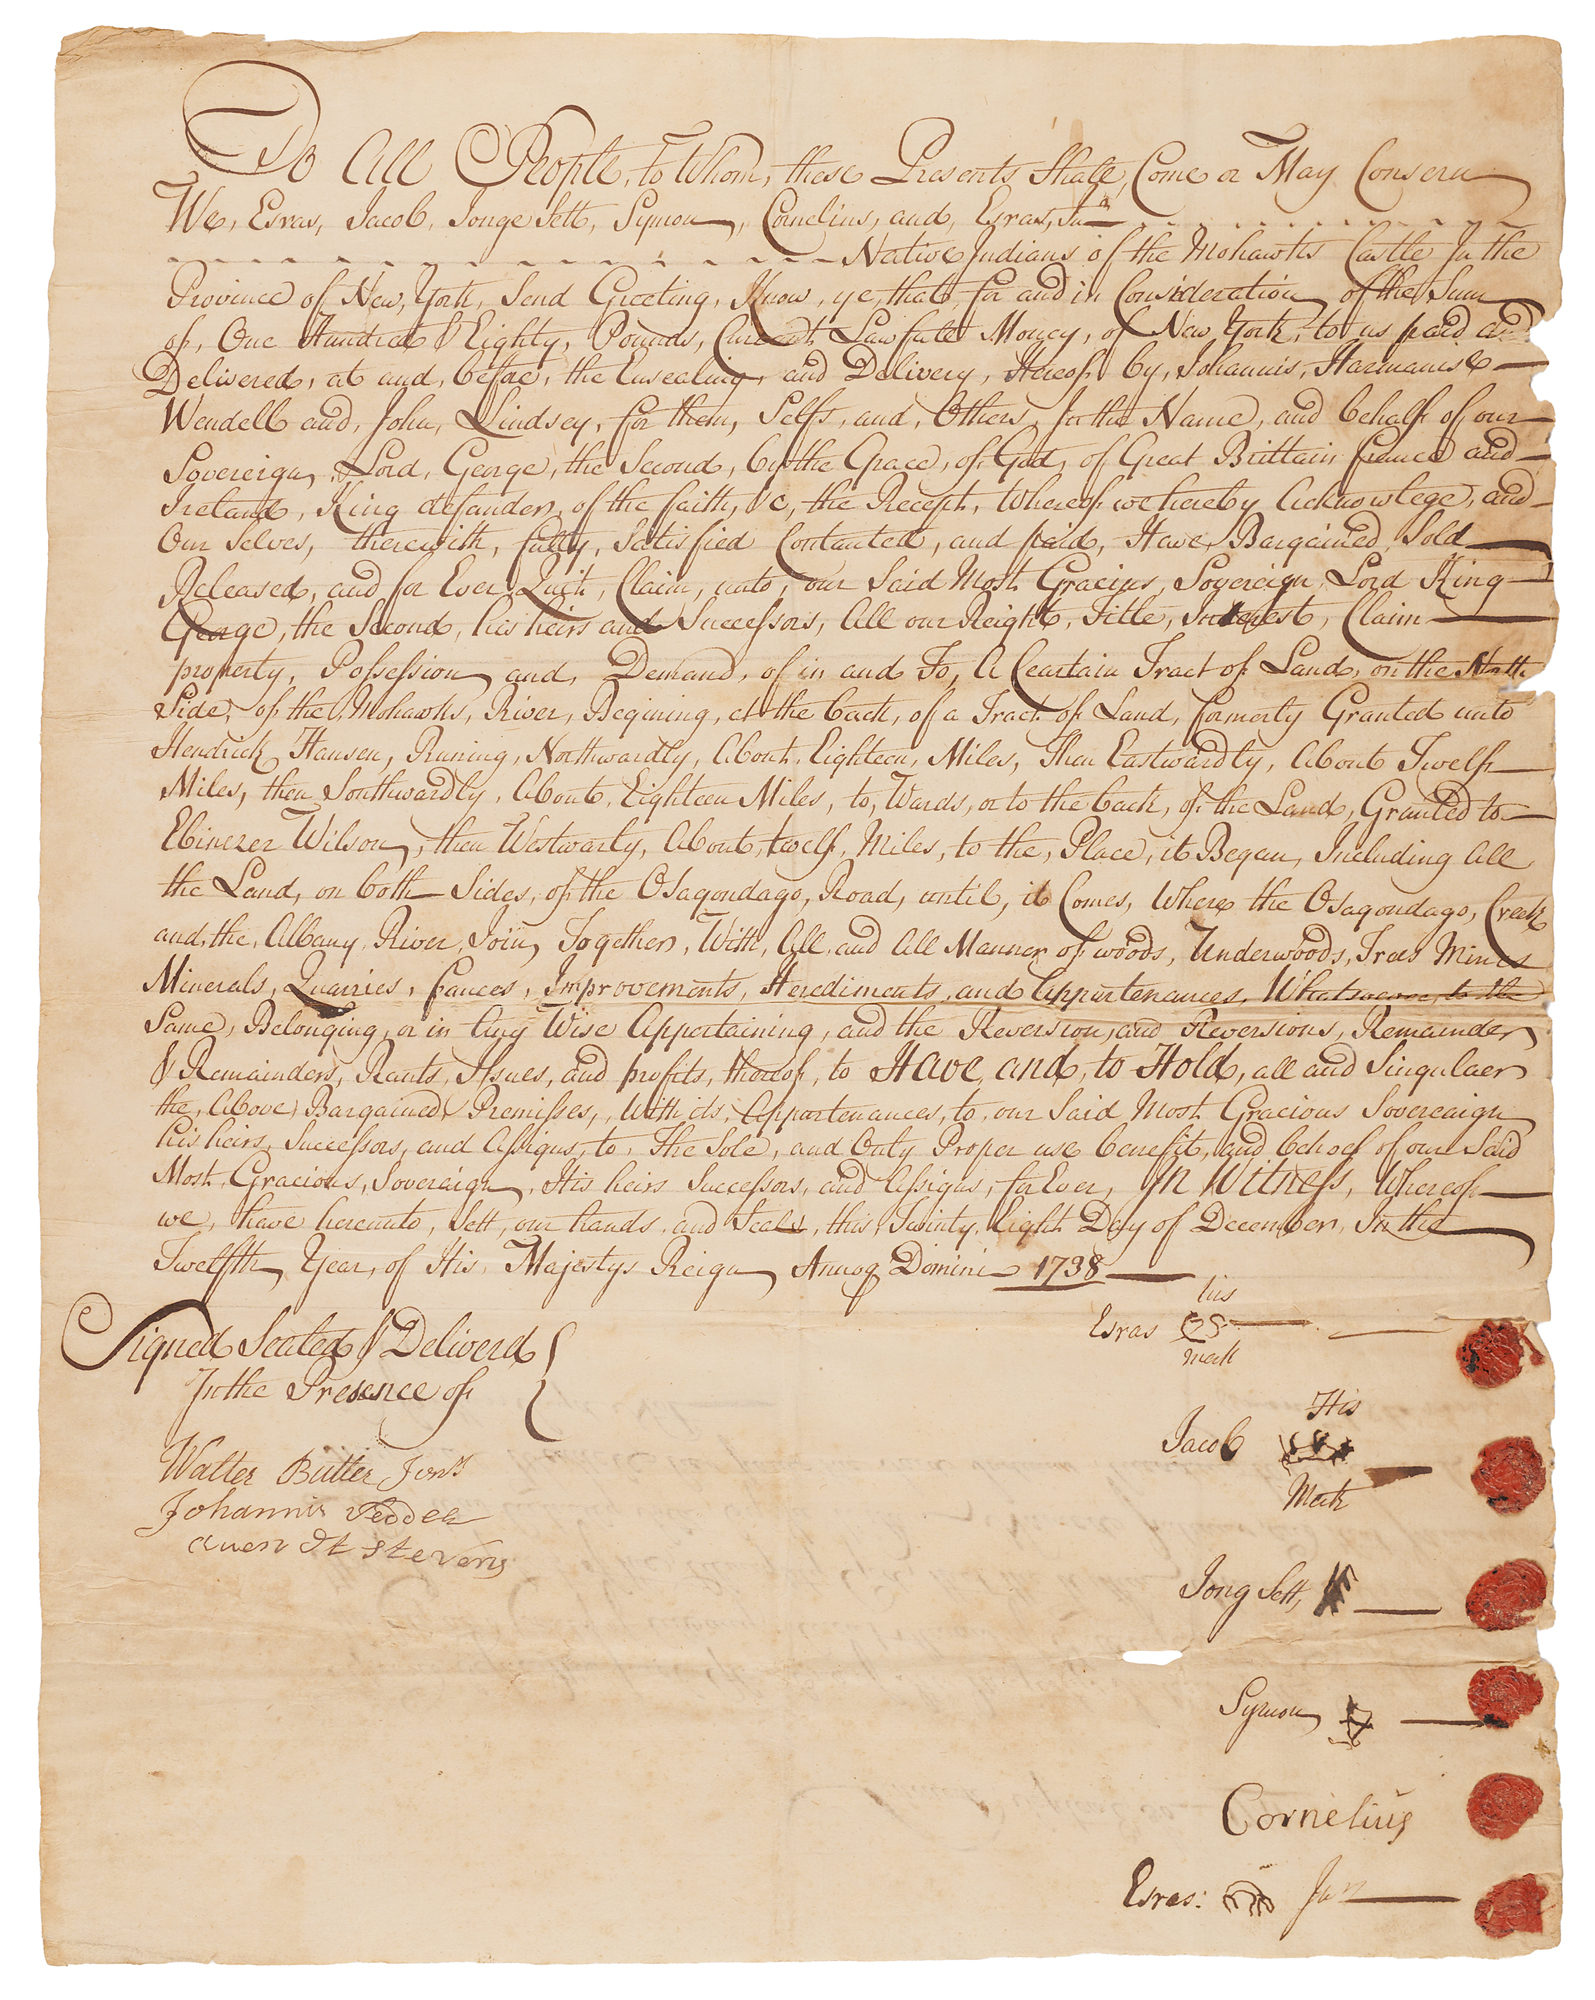 To All People, to Whom, these Presents Shall, Come or May Consern
We, Esras, Jacob, Jonge Sett, Symon, Cornelius, and, Esras, Junr
Native Indians of the Mohawks Castle In the
Provence of New, York, Send Greeting, Know, ye, that, for and in Consideration of the Sum
of, One Hundred & Eighty, Pounds, Current Lawfull Money, of New York, to us paid and
Delivered, at and, before, the Ensealing, and Delivery, Hereof, by, Johannis, Harmanise
Wendell and, John, Lindsey, for them, Selfs, and, Others, In the Name, and behalf of our
Sovereign, Lord, George, the Second, by the Grace, of, God, of Great Brittain france and
Ireland, King defander, of the faith, &c, the Recept, Whereof we hereby Acknowlege, and
Our Selves, therewith, fully, Satisfied Contented, and paid, Have, Bargained, Sold
Released, and for Ever Quit, Claim, unto, our Said Most Gracius, Sovereign Lord King
George, the Second, his heirs and Successors, All our Reight, Title, Interest, Claim
property, Possession and, Demand, of in and To, A Ceartain Tract of Land, on the North
Side, of the, Mohawks, River, Begining, at the back, of a Tract of Land, formerly Granted unto
Hendrick Hansen, Runing, Northwardly, About Eighteen, Miles, Then Eastwardly, About Twelf
Miles, then Southwardly, About, Eighteen Miles, to, Wards, or to the back, of the Land, Granted to
Ebinezer Wilson, then Westwarly, About, twelf, Miles, to the, Place, it Began, Including All
the Land, on both Sides, of the Osagondago, Road, until, it Comes, Where the Osagondago, Creek
and, the, Albany River, Join, Together, With, All, and All Manner of woods, Underwoods, Trees Mines
Minerals, Quarries, fances, Improvements, Herediments, and Appurtenances, Whatsoever, to the
Same, Belonging, or in Any Wise Appertaining, and the Reversion, and Reversions, Remainder
& Remainders, Rants, Issues, and profits, thereof, to Have, and, to Hold, all and Singulaer
the, Above, Bargained, Premisses, With its, Appurtenances, to, our Said Most Gracious Sovereaign
his heirs, Successors, and Assigns, to, The Sole, and Only Proper use benefit, and behoof of our Said
Most, Gracious, Sovereign, His heirs Successors, and Assigns, for Ever, In Witness, Whereof
we, have hereunto, Sett, our hands and Seals, this, Twinty, Eight Day of December, In the
Twelfth Year, of His Majestys Reign Annoq Domini 1738
Signed Sealed & Deliverd
In the Presence of
Walter Butler Junr
Johannis Vedder
Arent Stevens
his
Esras
mark
His
Jacob
Mark
Jong Sett,
Symon
Cornelius
Esras: Jun